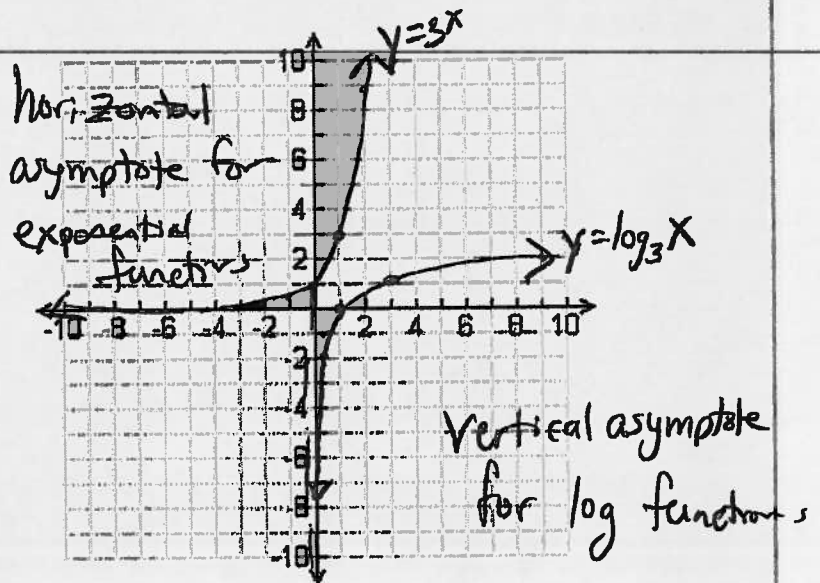 y=3ˣ
horizontal
asymptote for
exponential
functions
y=log₃x
vertical asymptote
for log functions
10
8
6
4
2
-10 -8 -6 -4 -2 2 4 6 8 10
-2
-4
-6
-8
-10